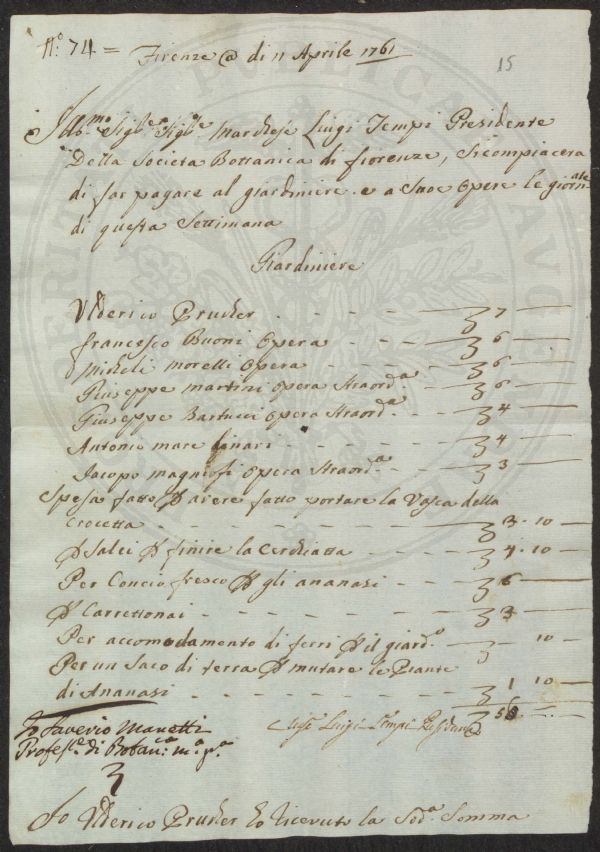 N.° 74 = Firenze @ di 11 Aprile 1761
15
Ill.mo Sig.re Sig.re Marchese Luigi Tempi Presidente
Della Societa Bottanica di fiorenze, Si compiacera
di far pagare al giardiniere e a Sue Opere le giornate
di questa Settimana
Giardiniere
Ulderico Prucher - - - - 7 —
francesco Buoni Opera - - - - 6 —
Micheli morelli Opera - - - - 6 —
Giuseppe martini Opera Straord.a - - 6 —
Giuseppe Bartucci Opera Straord.a - - 4 —
Antonio mare - - - - 4 —
Jacopo magniosi Opera Straord.a - - 3 —
Spesa fatto P avere fatto portare la Vasca della
Crocetta - - - - 3 . 10 —
P Salci P finire la Cerchiatta - - - 4 . 10 —
Per Concio fresco P gli ananasi - - - 6 —
P Carrettonai - - - - 3 —
Per accomodamento di ferri P il giard.o - 10 —
Per un Saco di terra P mutare le Piante
di Ananasi - - - - 1 10 —
Io Saverio Manetti
Profess.e di Botan.ca m.o p.a
Luigi Tempi Presidente
Io Ulderico Prucher ho Ricevuto la Sod.a Somma